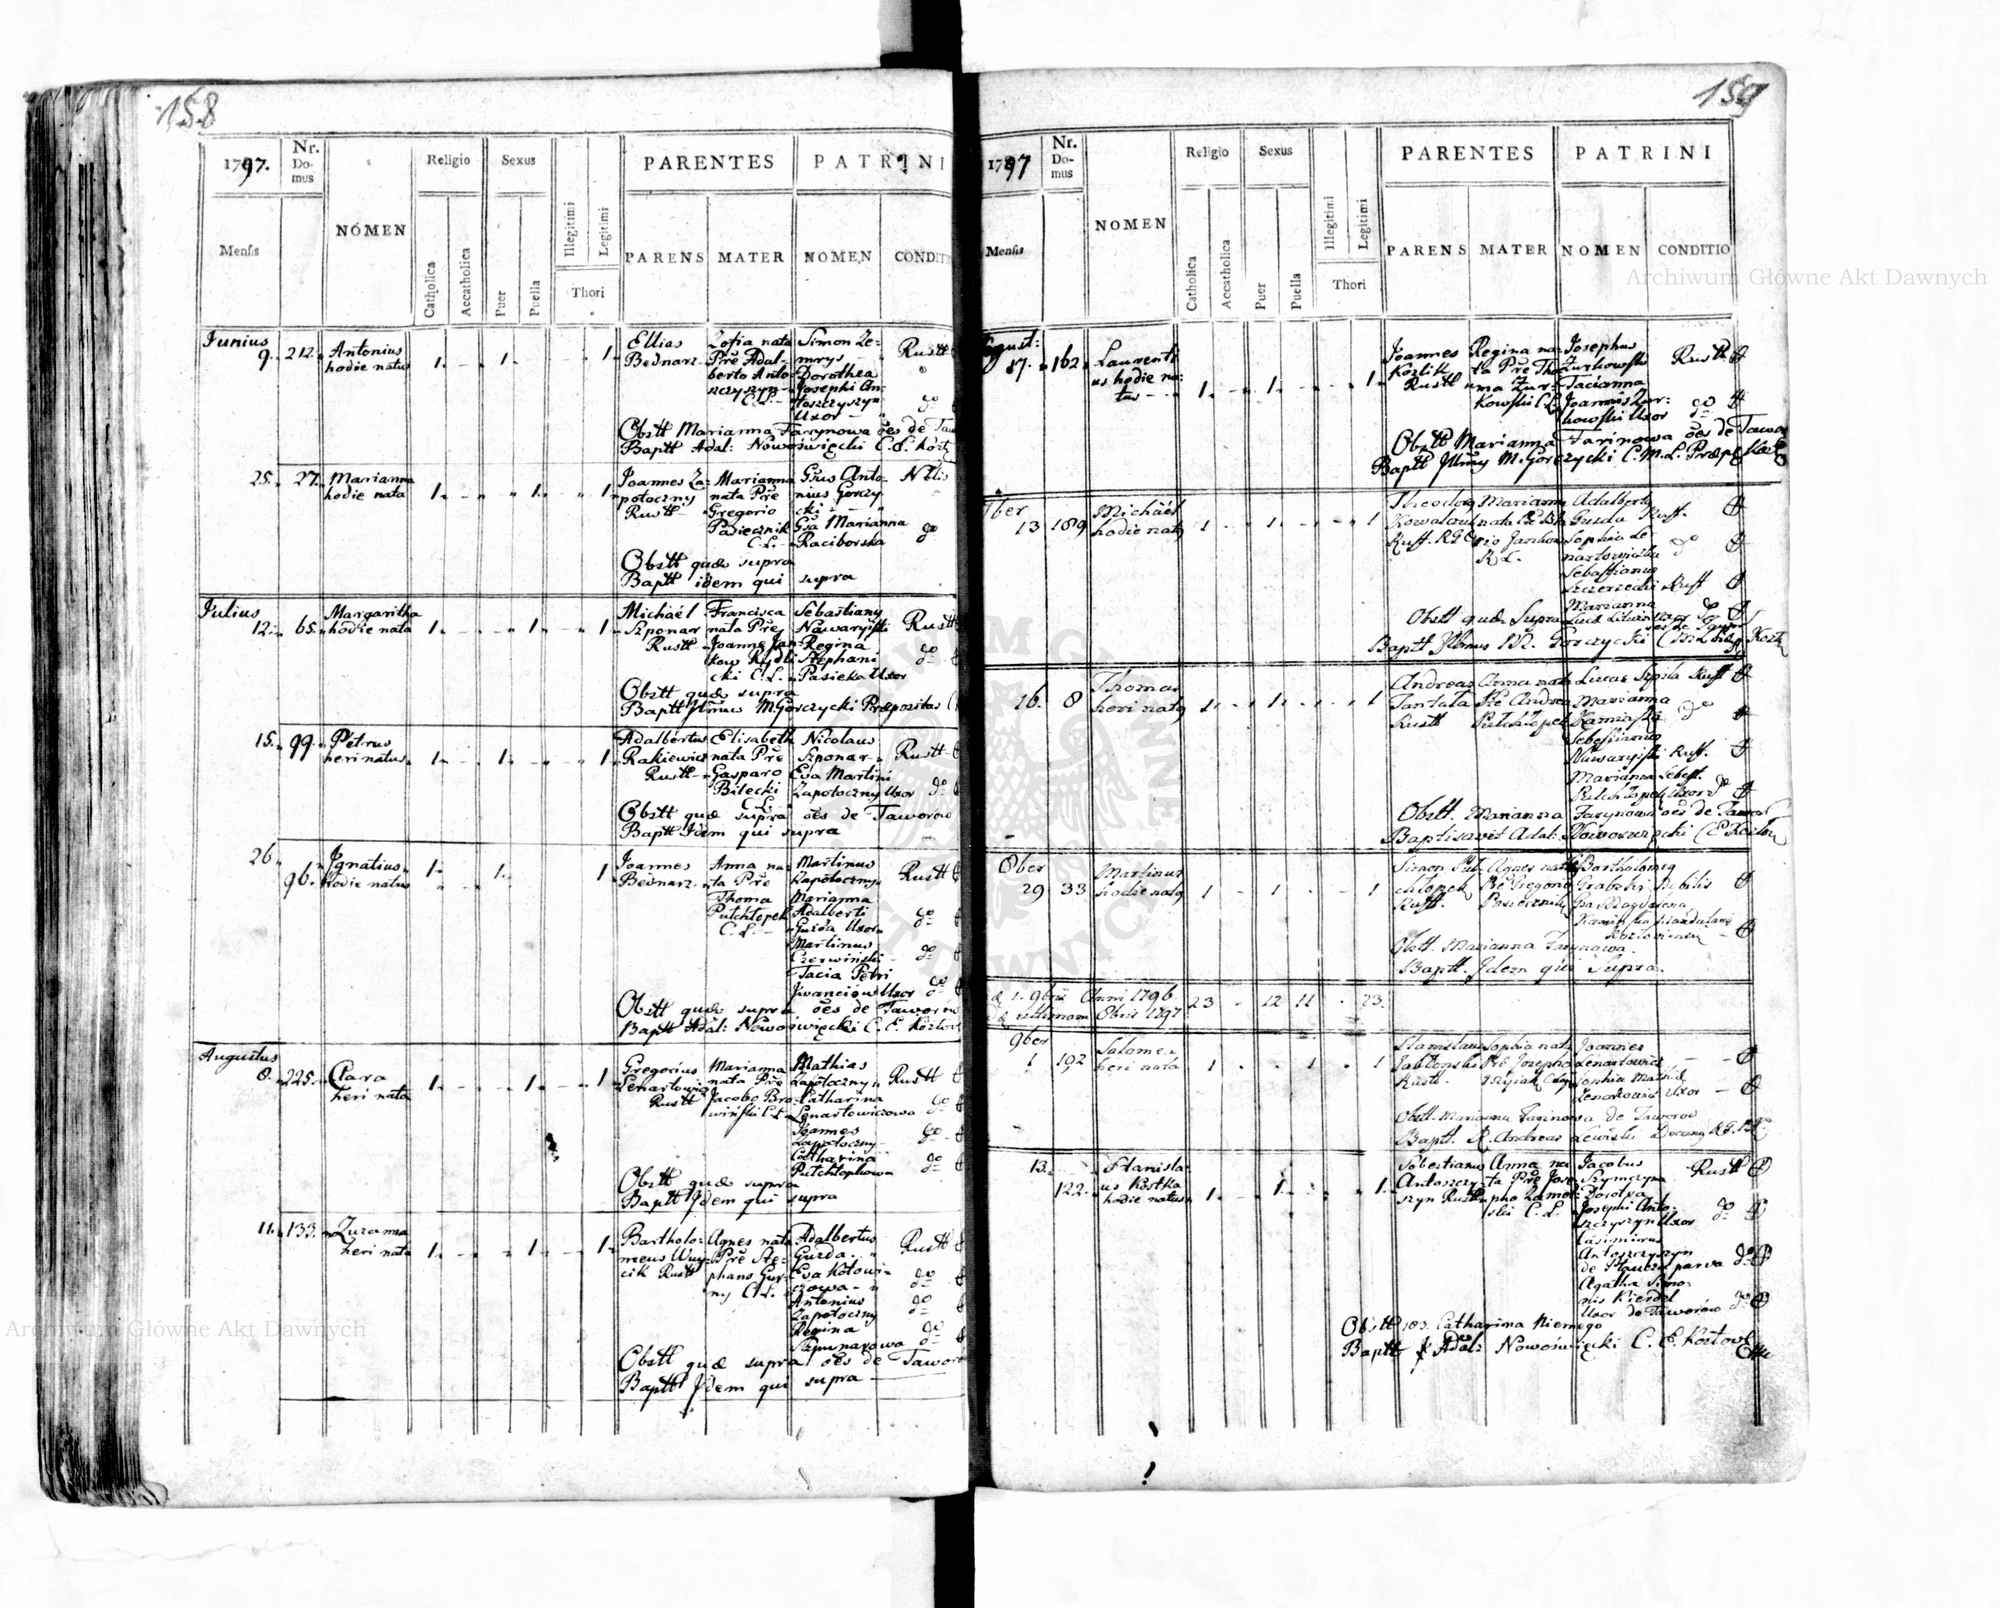 158
1797.
Nr. Domus
NOMEN
Religio
Sexus
PARENTES
PATRINI
Mensis
Catholica
Accatholica
Puer
Puella
Illegitimi
Legitimi
Thori
PARENS
MATER
NOMEN
CONDIT
Junius
9. 212. Antonius
hodie natus
1. 1. 1.
Ellias
Bednarz
Zofia nata
Pře Adal-
berto Anto-
szczyszyn
C.L.
Simon Ze-
mrys
Dorothea
Josephi An-
toszczyszyn
Uxor
Rustt
do
Obstt Marianna Farynowa oes de Taw
Baptt Adal: Nowoświęcki C.E. Kozł
25. 27. Marianna
hodie nata
1. 1. 1.
Joannes Za-
potoczny
Rustt
Marianna
nata Pře
Gregorio
Pasiecznik
C.L.
Gsus Anto-
nius Gorczy
cki
Gsa Marianna
Raciborska
Nblis
do
Obstt quæ supra
Baptt idem qui supra
Julius
12. 65. Margaritha
hodie nata
1. 1. 1.
Michaël
Szponar
Rustt
Francisca
nata Pře
Joanne Jan-
kow Rydli
cki C.L.
Sebastiany
Nawaryiski
Regina
Stephani
Pasieka Uxor
Rustt
do
Obstt quæ supra
Baptt Jllmus M. Gorczycki Præpositus
15. 99. Petrus
heri natus
1. 1. 1.
Adalbertus
Rakiewicz
Rustt
Elisabeth
nata Pře
Gasparo
Bilecki
C.L.
Nicolaus
Szponar
Eva Martini
Zapotoczny Uxor
Rustt
do
Obstt quæ supra oes de Taworow
Baptt Jdem qui supra
26. 96. Jgnatius
hodie natus
1. 1. 1
Joannes
Bednarz
Anna na-
ta Pře
Thoma
Putchłopek
C.L.
Martinus
Zapotoczny
Marianna
Adalberti
Guzda Uxor
Martinus
Czerwiński
Tacia Petri
Jwanciów Uxor
Rustt
do
do
do
Obstt quæ supra oes de Taworów
Baptt Adal: Nowoświęcki C.E. Kozłow
Augustus
8. 225. Clara
heri nata
1. 1. 1
Gregorius
Lenartowicz
Rustt
Marianna
nata Pře
Jacobo Bro-
wiński C.L.
Mathias
Zapotoczny
Catharina
Lenartowiczowa
Joannes
Zapotoczny
Catharina
Putchłopkowa
Rustt
do
do
do
Obstt quæ supra
Baptt Jdem qui supra
11. 133. Zuzanna
heri nata
1. 1. 1.
Bartholo-
meus Wuy-
cik Rustt
Agnes nata
Pře Ste-
phano Gur-
ny C.L.
Adalbertus
Guzda
Eva Kotowi-
czowa
Antonius
Zapotoczny
Regina
Szpunarowa
Rustt
do
do
do
Obstt quæ supra oes de Tawor
Baptt Jdem qui supra
159
1797
Nr. Domus
NOMEN
Religio
Sexus
PARENTES
PATRINI
Mensis
Catholica
Accatholica
Puer
Puella
Illegitimi
Legitimi
Thori
PARENS
MATER
NOMEN
CONDITIO
August:
17. 162. Laurenti
us hodie na-
tus
1. 1. 1.
Joannes
Kozlik
Rustt
Regina na-
ta Pře Tho-
ma Zur-
kowski C.L.
Josephus
Zurkowski
Tacianna
Joannis Zur-
kowski Uxor
Rustt
do
Obstt Marianna Farinowa oes de Tawo
Baptt Jllmus M. Gorczycki C.M.L. Præp. Kozł
7ber
13 189 Michaël
hodie natq
1 1 1
Marianna
Adalbertq
Guzda Rust.
Sophia Le-
nartowiczka
Sebastianus
Szczerecki Rust
Marianna
do
Obstt quæ Supra
16. 8 Thomas
heri natq
1. 1. 1
Andreas
Tantala
Rustt
Anna nata
Pře Andrea
Putchłopek
Lucas Szpila Rust
Marianna
Kaminska
Sebestianus
Nawaryiski Rust.
Marianna Sebest.
Putchłopek Uxor do
Obstt. Marianna Farynowa oes de Tawor
Baptisavit Adal: Nowoswięcki C E Kozłow
8ber
29 33 Martinus
hodie natq
1 1 1
Simon Put-
chłopek
Rust.
Agnes nata
Pře Gregorio
Pasiecznik
Bartholomeq
Grabski Nobilis
Gsa Magdalena
Obstt. Marianna Farynowa
Baptt. Jdem qui Supra.
a 1. 9bris Anni 1796
ad ultimam 8bris 1797
23 12 11 23.
9ber
1 192 Salomea
heri nata
1. 1. 1
Stanislaus
Jabłonski
Rustt.
Sophia nata
Pře Josepho
Joannes
Lenartowicz
Sophia Mathiæ
Lenartowicz Uxor
Obstt. Marianna Farinowa de Taworow
Baptt. R. Andreas Lewiński
13. 122. Stanisla-
us Kostka
hodie natus
1. 1. 1.
Sebestianus
Antoszczy-
szyn Rustt
Anna na-
ta Pře Jose-
pho Zamoi-
ski C.L.
Jacobus
Szymczyna
Dorotha
Josephi Anto-
szczyszyn Uxor
Casimirus
Antoszczyszyn
de Hauera parva
Agatha Simo-
nis Kierdel
Uxor de Taworów
Rustt
do
do
do
Obstt 183. Catharina Niemego
Baptt Adal: Nowoświęcki C.E. Kozłov
Archiwum Główne Akt Dawnych
Archiwum Główne Akt Dawnych